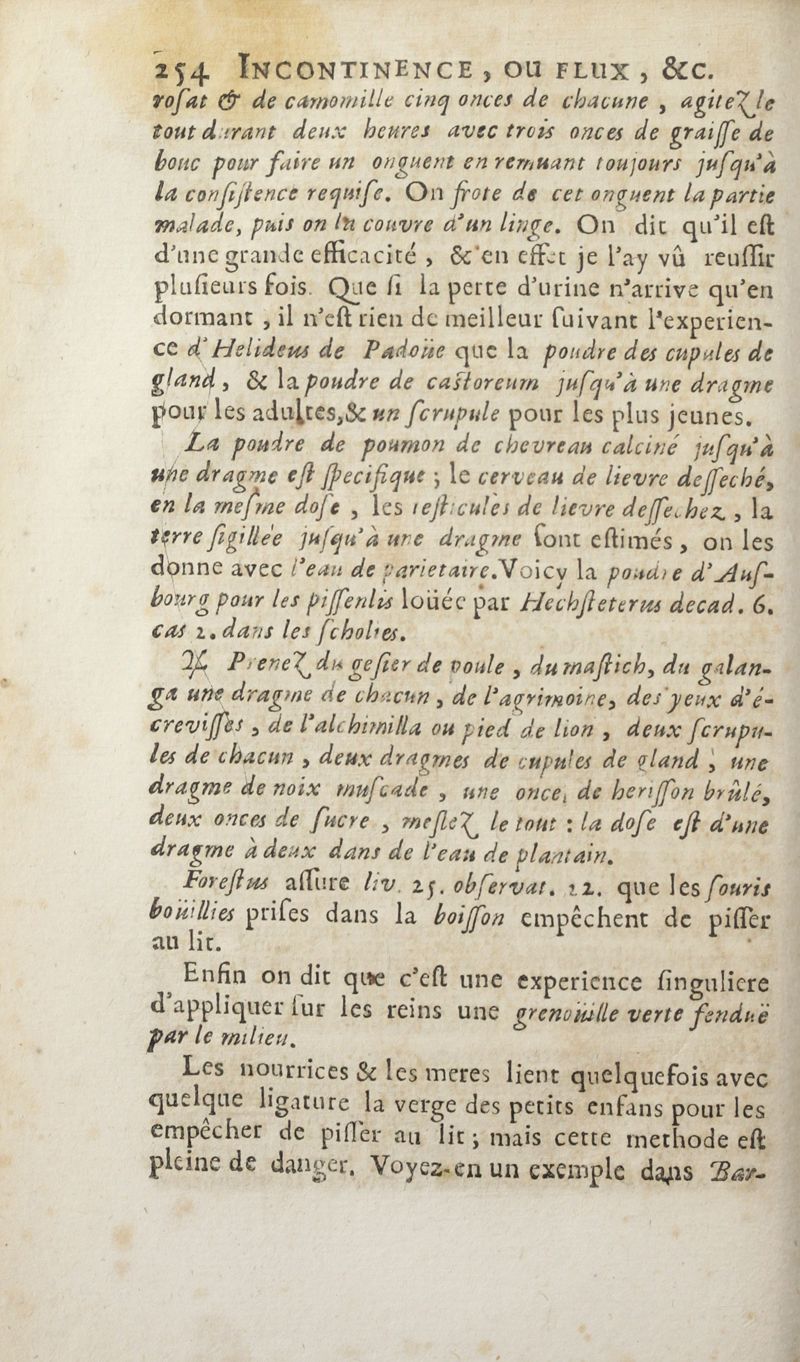 254 INCONTINENCE, OU FLUX, &c.
rosat & de camomille cinq onces de chacune, agitez le
tout durant deux heures avec trois onces de graisse de
bouc pour faire un onguent en remuant toujours jusqu'à
la consistence requise. On frote de cet onguent la partie
malade, puis on la couvre d'un linge. On dit qu'il est
d'une grande efficacité, & en effet je l'ay vû reussir
plusieurs fois. Que si la perte d'urine n'arrive qu'en
dormant, il n'est rien de meilleur suivant l'experien-
ce d'Helideus de Padoüe que la poudre des cupules de
gland, & la poudre de castoreum jusqu'à une dragme
pour les adultes, & un scrupule pour les plus jeunes.
La poudre de poumon de chevreau calciné jusqu'à
une dragme est specifique; le cerveau de lievre desseché,
en la mesme dose, les testicules de lievre dessechez, la
terre sigillée jusqu'à une dragme sont estimés, on les
donne avec l'eau de parietaire. Voicy la poudre d'Aus-
bourg pour les pissenlis loüée par Hechsteterus decad. 6.
cas 2. dans les scholies.
℞ Prenez du gesier de poule, du mastich, du galan-
ga une dragme de chacun, de l'agrimoine, des yeux d'é-
crevisses, de l'alchimilla ou pied de lion, deux scrupu-
les de chacun, deux dragmes de cupules de gland, une
dragme de noix muscade, une once de herisson brûlé,
deux onces de sucre, meslez le tout: la dose est d'une
dragme à deux dans de l'eau de plantain.
Forestus assure liv. 25. observat. 12. que les souris
boüillies prises dans la boisson empêchent de pisser
au lit.
Enfin on dit que c'est une experience singuliere
d'appliquer sur les reins une grenoüille verte fenduë
par le milieu.
Les nourrices & les meres lient quelquefois avec
quelque ligature la verge des petits enfans pour les
empêcher de pisser au lit; mais cette methode est
pleine de danger. Voyez-en un exemple dans Bar-